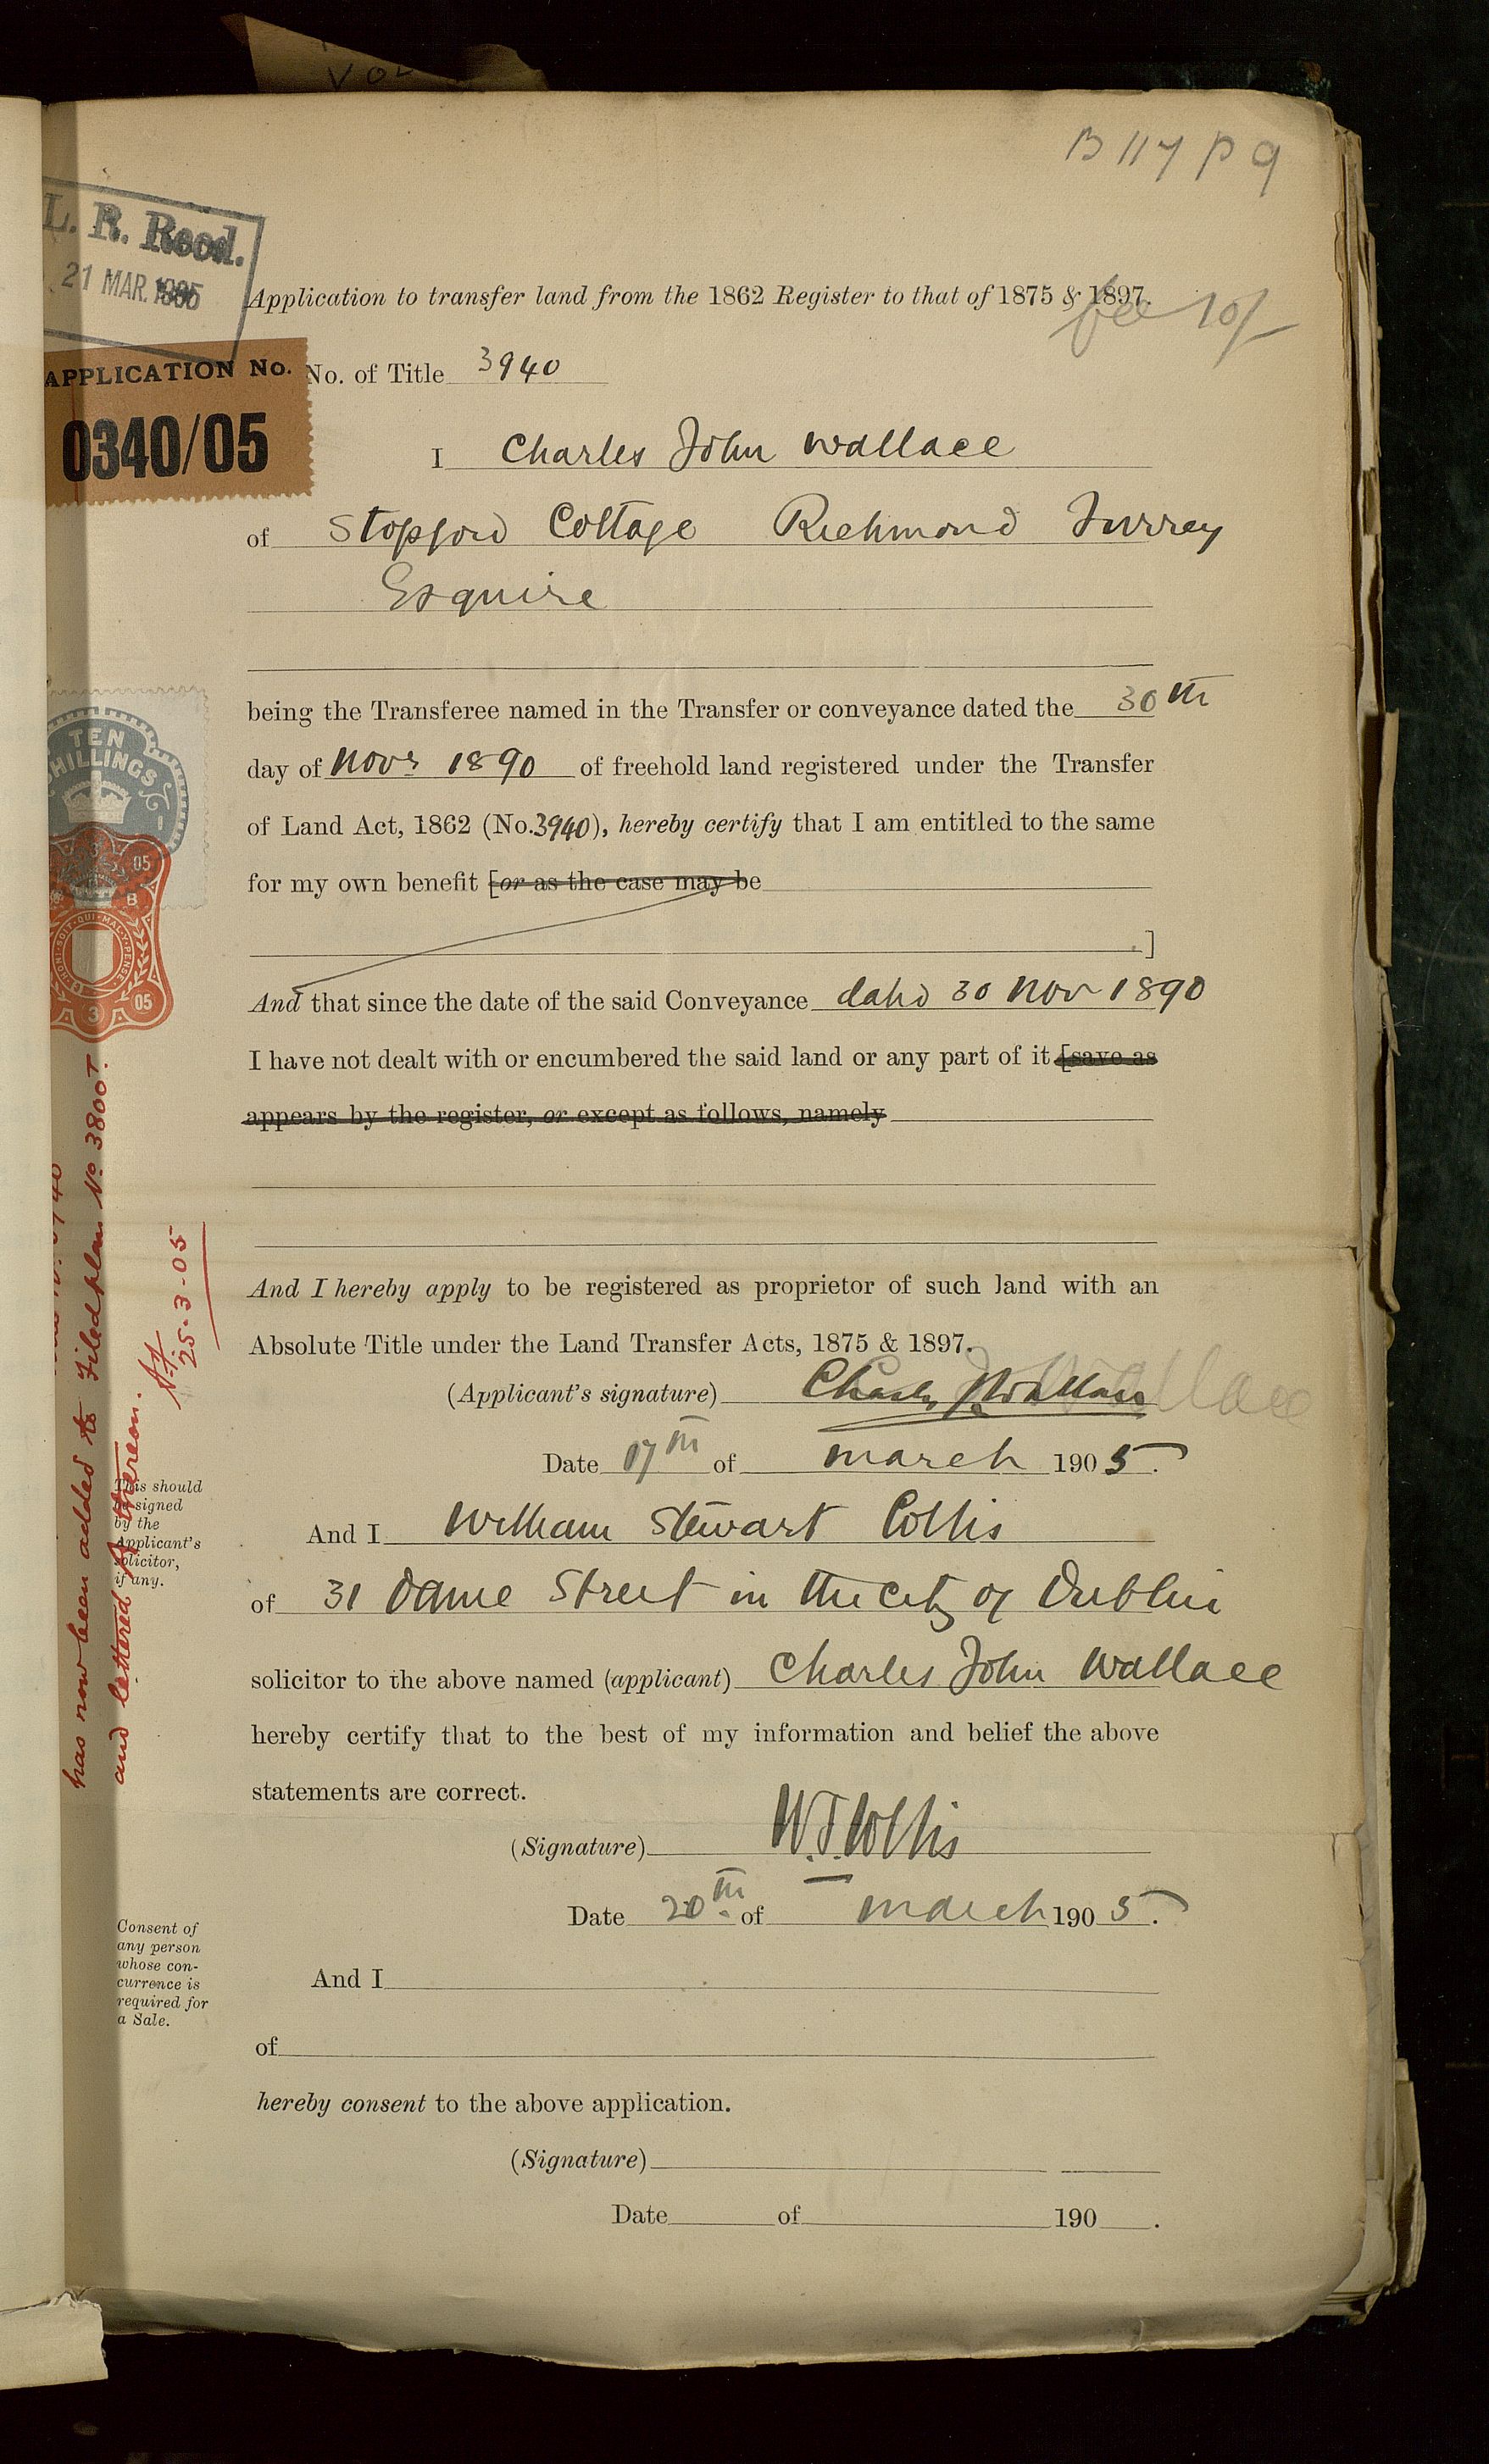 VOL
B 117 P 9
L. R. Recd.
21 MAR. 1905
Application to transfer land from the 1862 Register to that of 1875 & 1897.
fee 10/-
APPLICATION No.
0340/05
No. of Title 3940
I Charles John Wallace
of Stopford Cottage Richmond Surrey
Esquire
being the Transferee named in the Transfer or conveyance dated the 30th
day of Novr 1890 of freehold land registered under the Transfer
of Land Act, 1862 (No. 3940), hereby certify that I am entitled to the same
for my own benefit [or as the case may be
.]
TEN
SHILLINGS
3
05
B
HONI·SOIT·QUI·MAL·Y·PENSE
05
3
And that since the date of the said Conveyance dated 30 Nov 1890
I have not dealt with or encumbered the said land or any part of it [save as
appears by the register, or except as follows, namely
And I hereby apply to be registered as proprietor of such land with an
Absolute Title under the Land Transfer Acts, 1875 & 1897.
(Applicant's signature) Charles J Wallace
Date 17th of March 1905.
has now been added to Filed plan No. 3800T.
and lettered A thereon.
25-3-05
This should
be signed
by the
Applicant's
solicitor,
if any.
And I William Stewart Collis
of 31 Dame Street in the City of Dublin
solicitor to the above named (applicant) Charles John Wallace
hereby certify that to the best of my information and belief the above
statements are correct.
(Signature) W.S. Collis
Date 20th of March 1905.
Consent of
any person
whose con-
currence is
required for
a Sale.
And I
of
hereby consent to the above application.
(Signature)
Date of 190 .